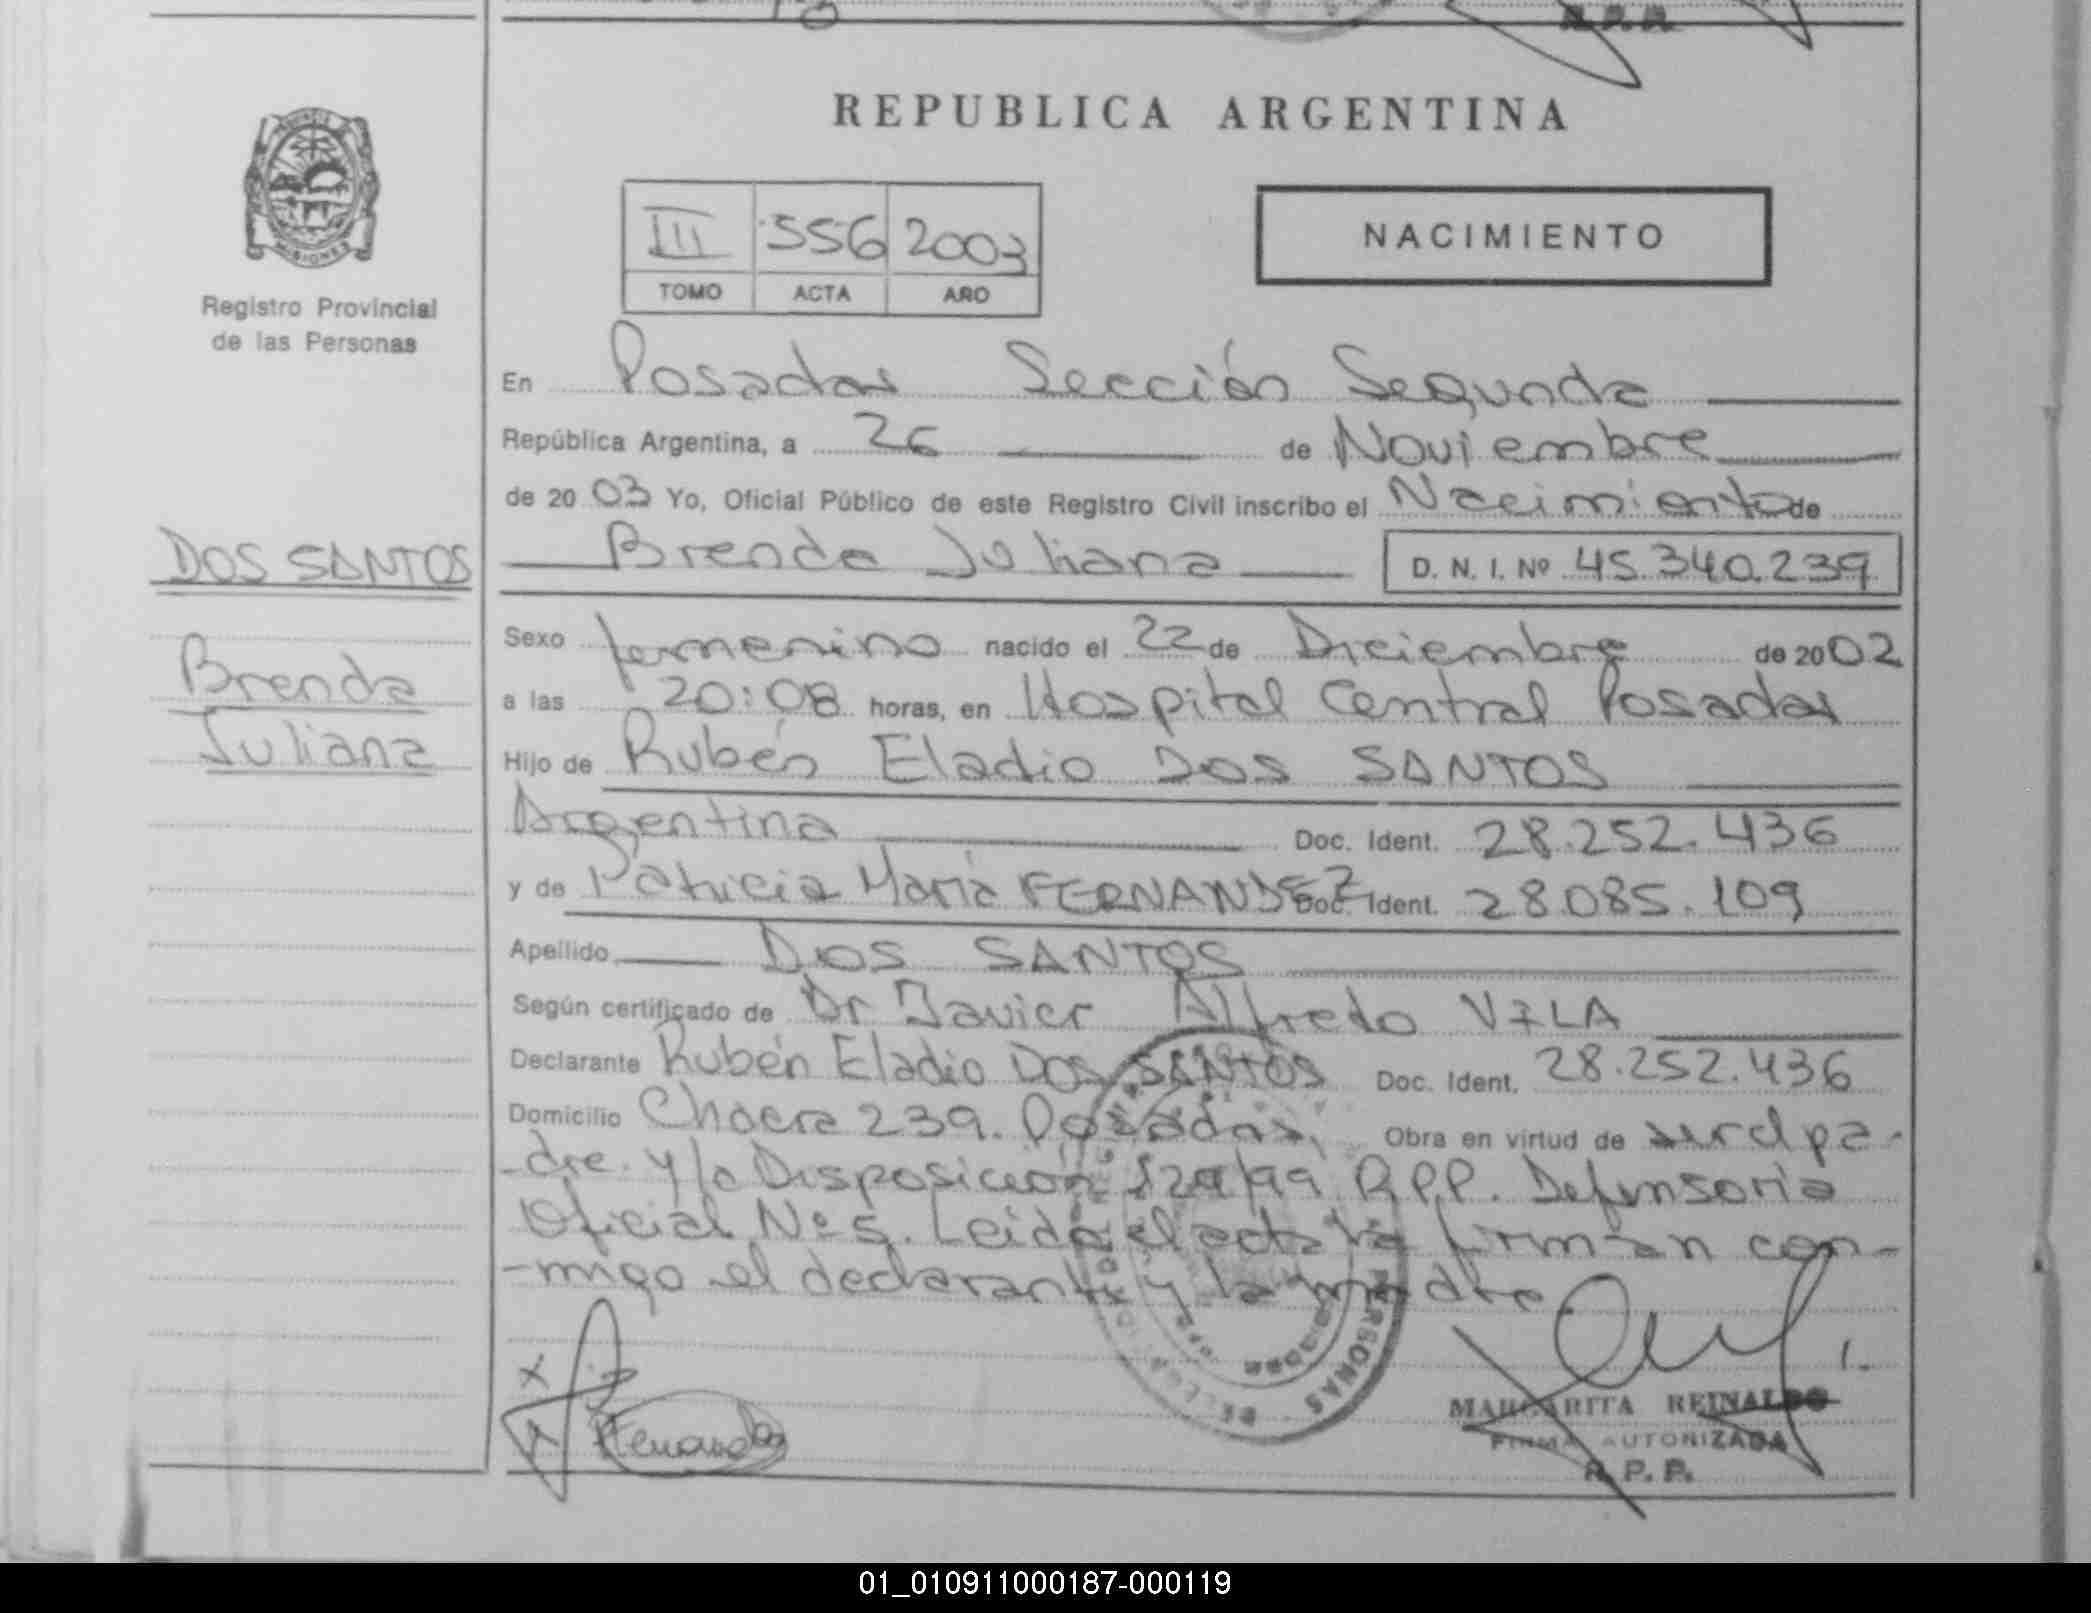 R.P.P.
REPUBLICA ARGENTINA
III 556 2003
TOMO ACTA AÑO
NACIMIENTO
MISIONES
Registro Provincial
de las Personas
DOS SANTOS
Brenda
Juliana
En Posadas Sección Segunda
República Argentina, a 26 de Noviembre
de 2003 Yo, Oficial Público de este Registro Civil inscribo el Nacimiento de
Brenda Juliana D. N. I. Nº 45.340.239
Sexo femenino nacido el 22 de Diciembre de 2002
a las 20:08 horas, en Hospital Central Posadas
Hijo de Rubén Eladio DOS SANTOS
Argentina Doc. Ident. 28.252.436
y de Patricia María FERNANDEZ Doc. Ident. 28.085.109
Apellido DOS SANTOS
Según certificado de Dr Javier Alfredo VILA
Declarante Rubén Eladio DOS SANTOS Doc. Ident. 28.252.436
Domicilio Chacra 239. Posadas, Obra en virtud de ser el pa-
-dre. y/o Disposición /99 R.P.P. Defensoria
Oficial Nº 5. Leida el acta la firman con-
-migo el declarante y la madre
PERSONAS
Fernandez
MARGARITA REINALDO
FIRMA AUTORIZADA
R. P. P.
01_010911000187-000119